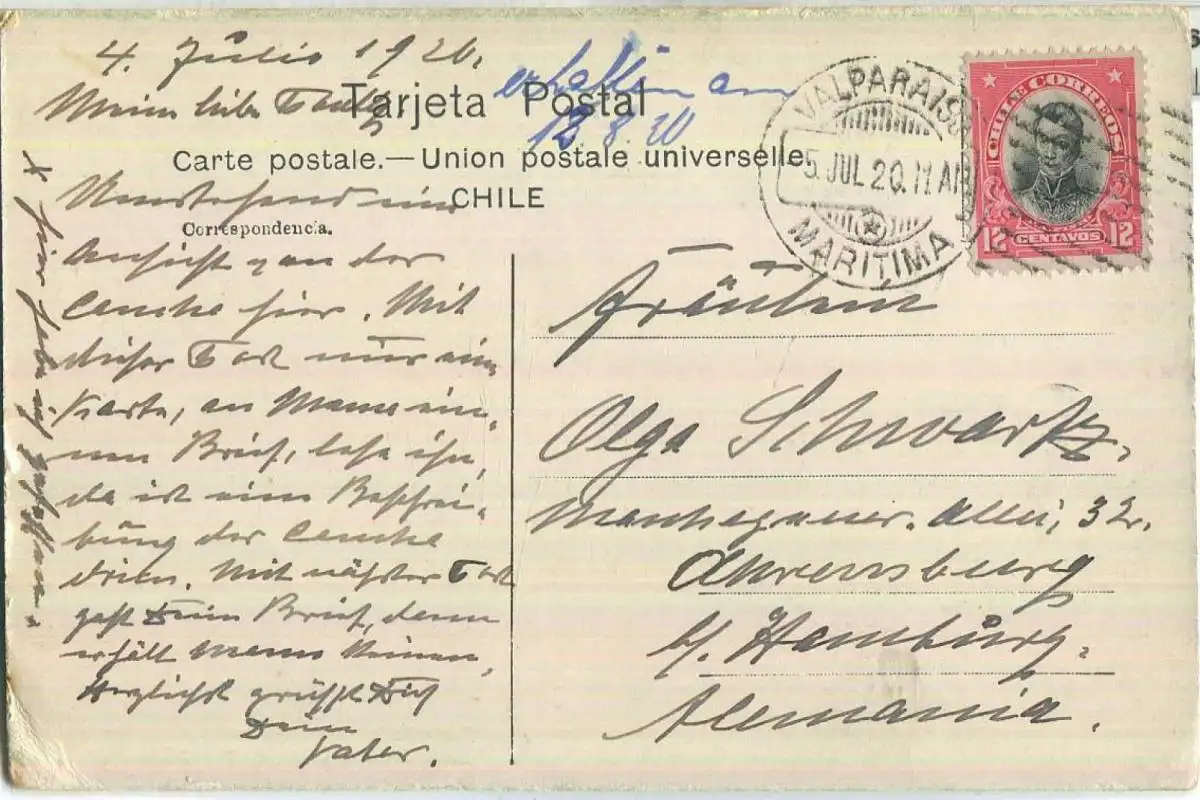 4. Julio 1920.
erhalten am
12.8.20
Tarjeta Postal
Carte postale.—Union postale universelle.
CHILE
Correspondencia.
VALPARAISO
5 JUL 20. 11 AM
MARITIMA
CHILE CORREOS
12 CENTAVOS 12
Mein liebe
Umstehend eine
Ansicht von der
hier. Mit
dieser Post nur eine
Karte, an Mama ei-
nen Brief, lese ihn,
da ist eine Beschrei-
bung der
drin. Mit nächster Post
geht Dein Brief, dann
erhält Mama keinen,
Herzlichst grüsst Dich
Dein
Vater.
x hier habe ich
Fräulein
Olga Schwartz.
Allee, 32.
Ahrensburg
b/ Hamburg.
Alemania.